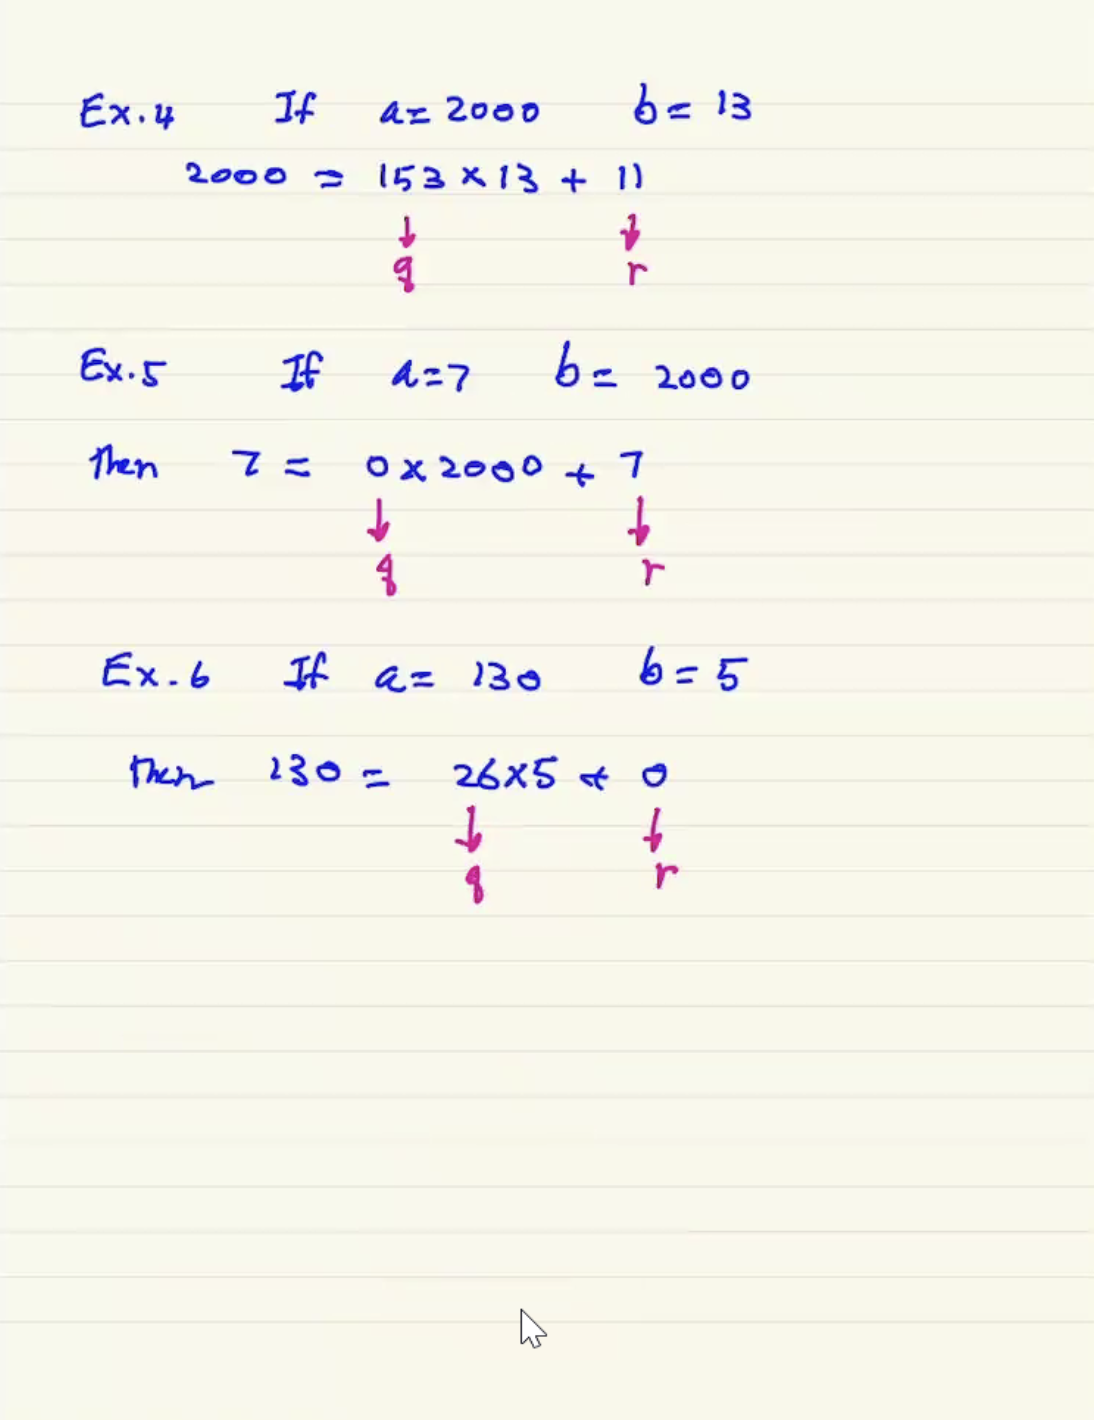 Ex.4 If a = 2000 b = 13
2000 = 153 × 13 + 11
↓ ↓
q r
Ex.5 If a = 7 b = 2000
then 7 = 0 × 2000 + 7
↓ ↓
q r
Ex.6 If a = 130 b = 5
then 130 = 26 × 5 + 0
↓ ↓
q r